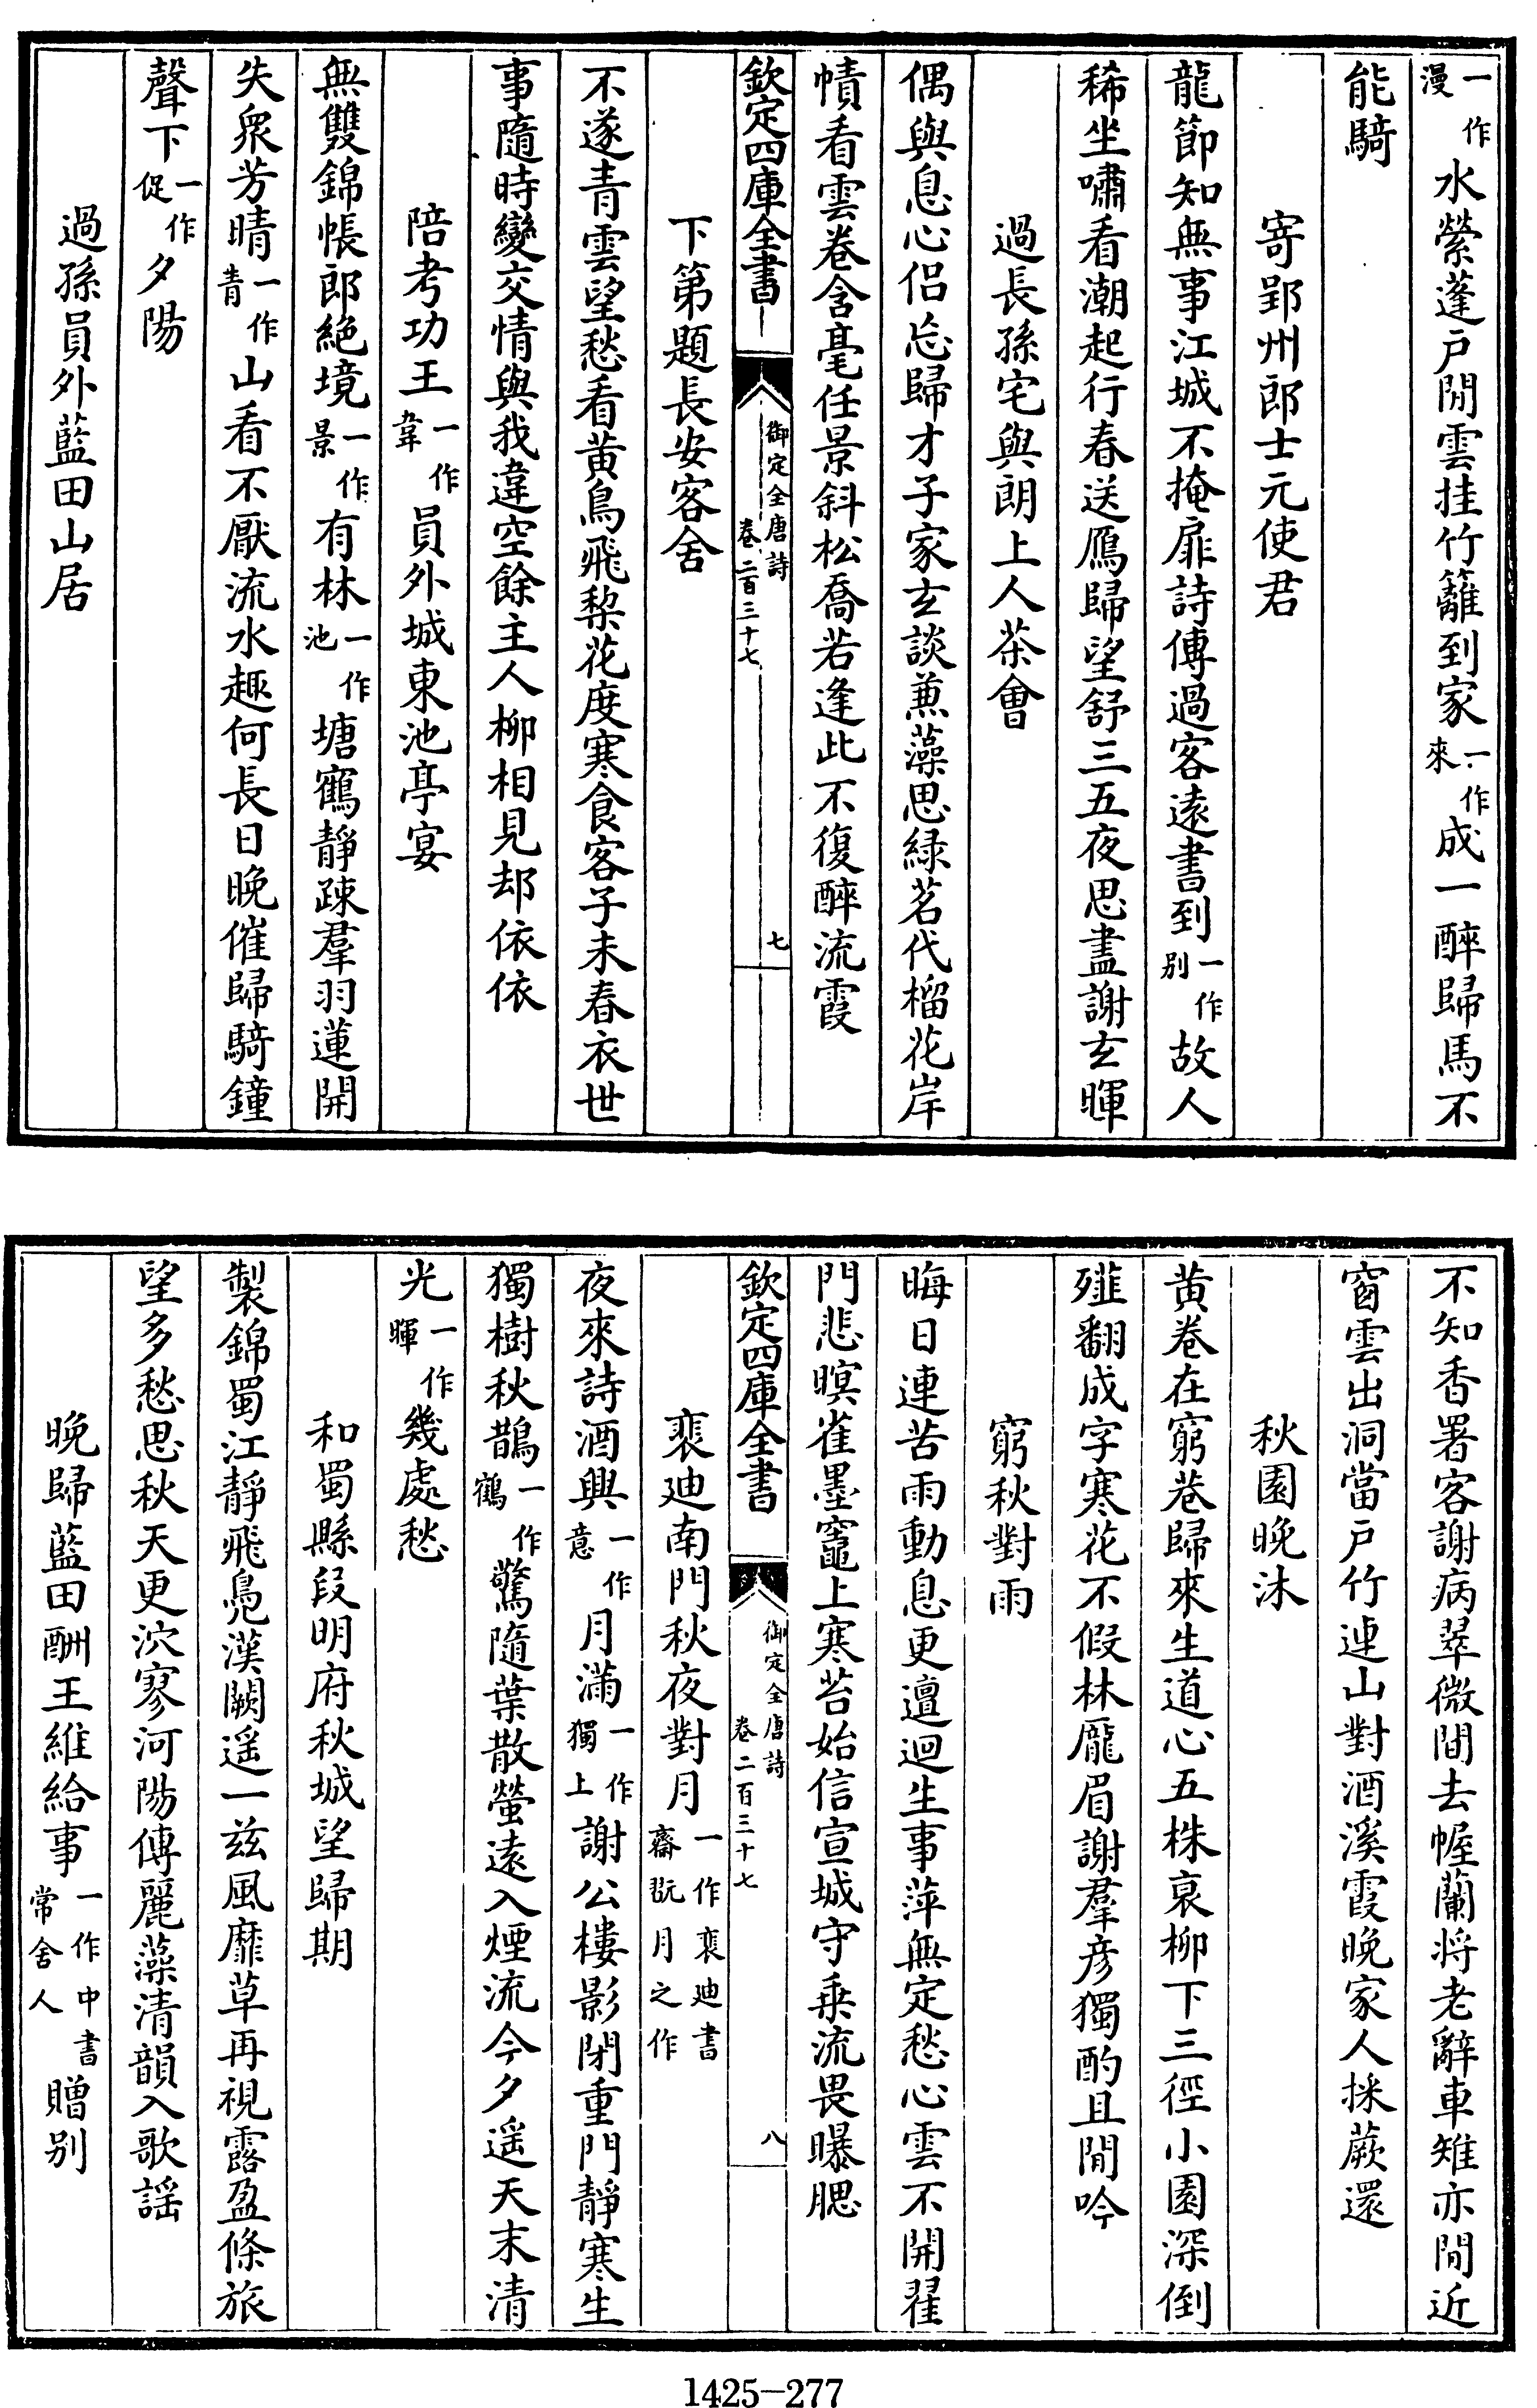 一作漫水縈蓬戶閒雲挂竹籬到家一作來成一醉歸馬不
能騎
寄郢州郎士元使君
龍節知無事江城不掩扉詩傳過客遠書到一作别故人
稀坐嘯看潮起行春送鴈歸望舒三五夜思盡謝玄暉
過長孫宅與朗上人茶會
偶與息心侣忘歸才子家玄談兼藻思緑茗代榴花岸
幘看雲卷含毫任景斜松喬若逢此不復醉流霞
欽定四庫全書
御定全唐詩
卷二百三十七
七
下第題長安客舍
不遂青雲望愁看黄鳥飛棃花度寒食客子未春衣世
事隨時變交情與我違空餘主人柳相見却依依
陪考功王一作韋員外城東池亭宴
無雙錦帳郎絶境一作景有林一作池塘鶴静疎羣羽蓮開
失衆芳晴一作青山看不厭流水趣何長日晚催歸騎鐘
聲下一作促夕陽
過孫員外藍田山居
不知香署客謝病翠微間去幄蘭将老辭車雉亦閒近
窗雲出洞當户竹連山對酒溪霞晚家人採蕨還
秋園晚沐
黄卷在窮巷歸來生道心五株衰柳下三徑小園深倒
薤翻成字寒花不假林龎眉謝羣彦獨酌且閒吟
窮秋對雨
晦日連苦雨動息更邅迴生事萍無定愁心雲不開翟
門悲暝雀墨竈上寒苔始信宣城守乗流畏曝腮
欽定四庫全書
御定全唐詩
卷二百三十七
八
裴廸南門秋夜對月一作裴廸書齋翫月之作
夜來詩酒興一作意月滿一作獨上謝公樓影閉重門静寒生
獨樹秋鵲一作鶴驚隨葉散螢遠入煙流今夕遥天末清
光一作暉幾處愁
和蜀縣段明府秋城望歸期
製錦蜀江静飛鳬漢闕遥一兹風靡草再視露盈條旅
望多愁思秋天更泬寥河陽傳麗藻清韻入歌謡
晚歸藍田酬王維給事一作中書常舍人贈别
1425—277